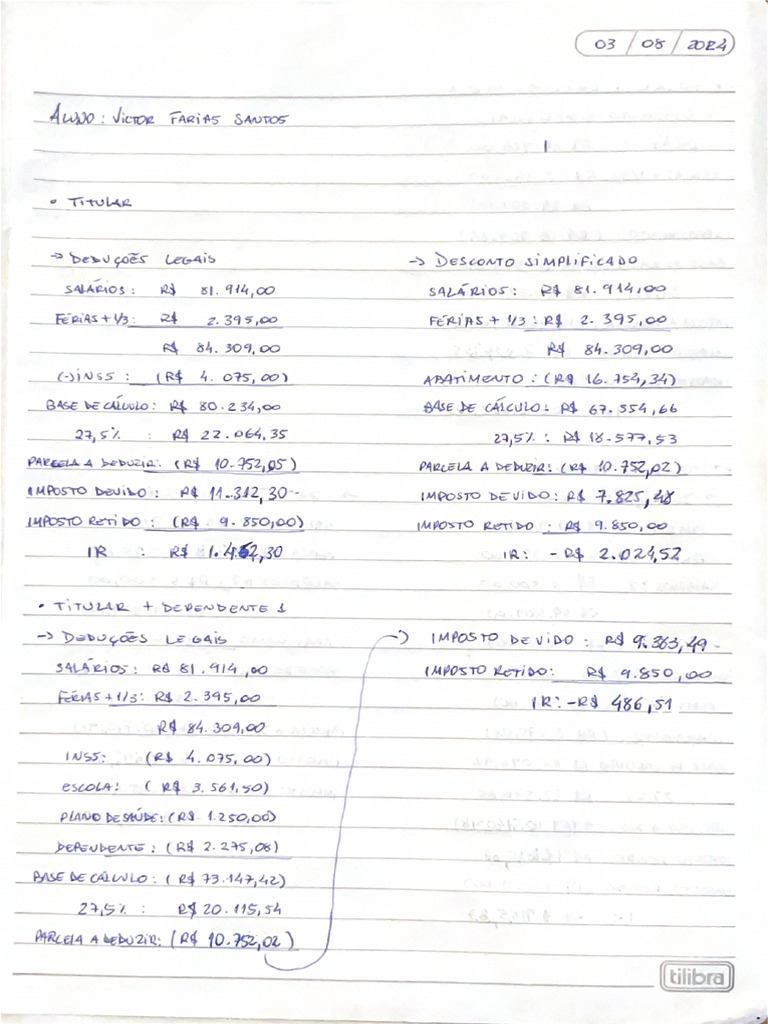 03 / 08 / 2024
ALUNO: VICTOR FARIAS SANTOS
• TITULAR
→ DEDUÇÕES LEGAIS
SALÁRIOS: R$ 81.914,00
FÉRIAS + 1/3: R$ 2.395,00
R$ 84.309,00
(-) INSS: (R$ 4.075,00)
BASE DE CÁLCULO: R$ 80.234,00
27,5% : R$ 22.064,35
PARCELA A DEDUZIR: (R$ 10.752,05)
IMPOSTO DEVIDO: R$ 11.312,30
IMPOSTO RETIDO: (R$ 9.850,00)
IR : R$ 1.462,30
→ DESCONTO SIMPLIFICADO
SALÁRIOS: R$ 81.914,00
FÉRIAS + 1/3: R$ 2.395,00
R$ 84.309,00
ABATIMENTO: (R$ 16.754,34)
BASE DE CÁLCULO: R$ 67.554,66
27,5% : R$ 18.577,53
PARCELA A DEDUZIR: (R$ 10.752,02)
IMPOSTO DEVIDO: R$ 7.825,48
IMPOSTO RETIDO: R$ 9.850,00
IR: -R$ 2.024,52
• TITULAR + DEPENDENTE 1
→ DEDUÇÕES LEGAIS
SALÁRIOS: R$ 81.914,00
FÉRIAS + 1/3: R$ 2.395,00
R$ 84.309,00
INSS: (R$ 4.075,00)
ESCOLA: (R$ 3.561,50)
PLANO DE SAÚDE: (R$ 1.250,00)
DEPENDENTE: (R$ 2.275,08)
BASE DE CÁLCULO: (R$ 73.147,42)
27,5% : R$ 20.115,54
PARCELA A DEDUZIR: (R$ 10.752,02)
IMPOSTO DEVIDO: R$ 9.363,49
IMPOSTO RETIDO: R$ 9.850,00
IR: -R$ 486,51
tilibra